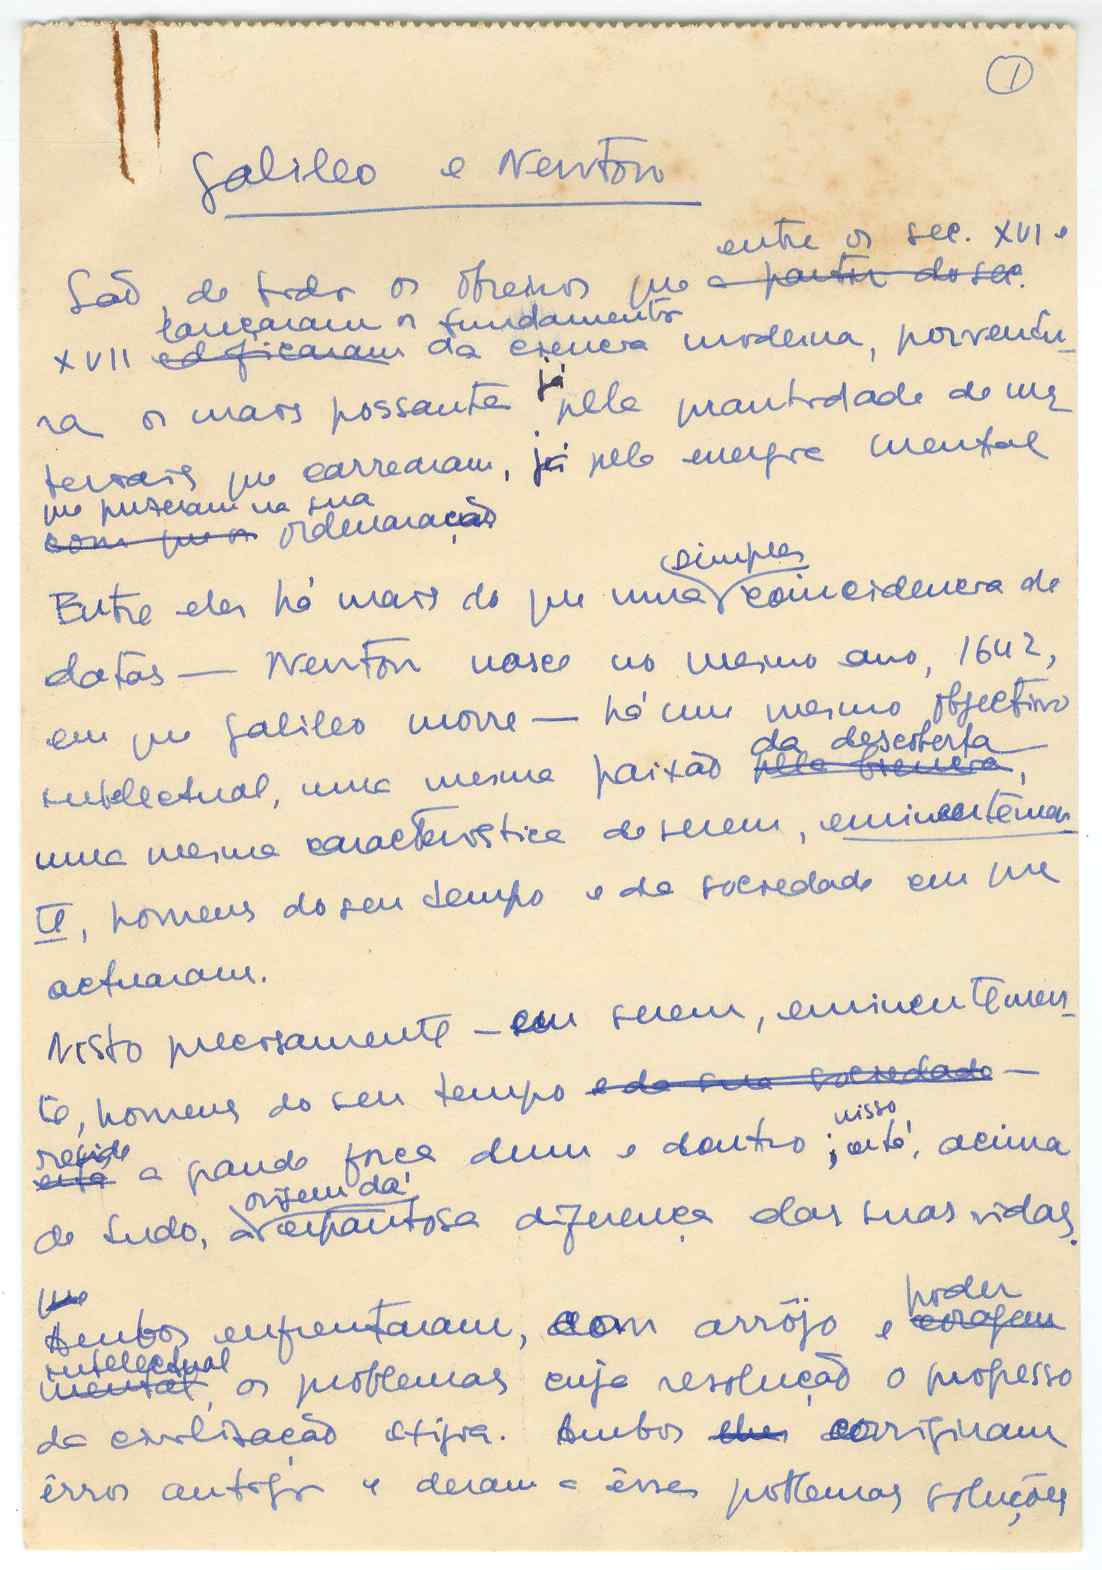 1
Galileo e Newton
entre os sec. XVI e
São, de todos os obreiros que a partir do sec.
lançaram os fundamentos
XVII edificaram da ciencia moderna, porventu-
ra os mais possantes já pela quantidade de ma
teriais que carrearam, já pela energia mental
que puseram na sua
com que a ordenaração
simples
Entre eles há mais do que uma coincidencia de
datas — Newton nasce no mesmo ano, 1642,
em que Galileo morre — há um mesmo objectivo
da descoberta
intelectual, uma mesma paixão pela ,
uma mesma caracteristica de serem, eminentemen
te, homens do seu tempo e da sociedade em que
actuaram.
Nisto precisamente — em serem, eminentemen-
te, homens do seu tempo e da sua sociedade —
reside nisso
está a grande força dum e doutro ; está, acima
origem da
de tudo, a espantosa diferença das suas vidas.
que
poder
Ambos enfrentaram, com arrôjo e coragem
intelectual
mental, os problemas cuja resolução o progresso
da civilização exigia. Ambos eles corrigiram
êrros antigos e deram a êsses problemas soluções